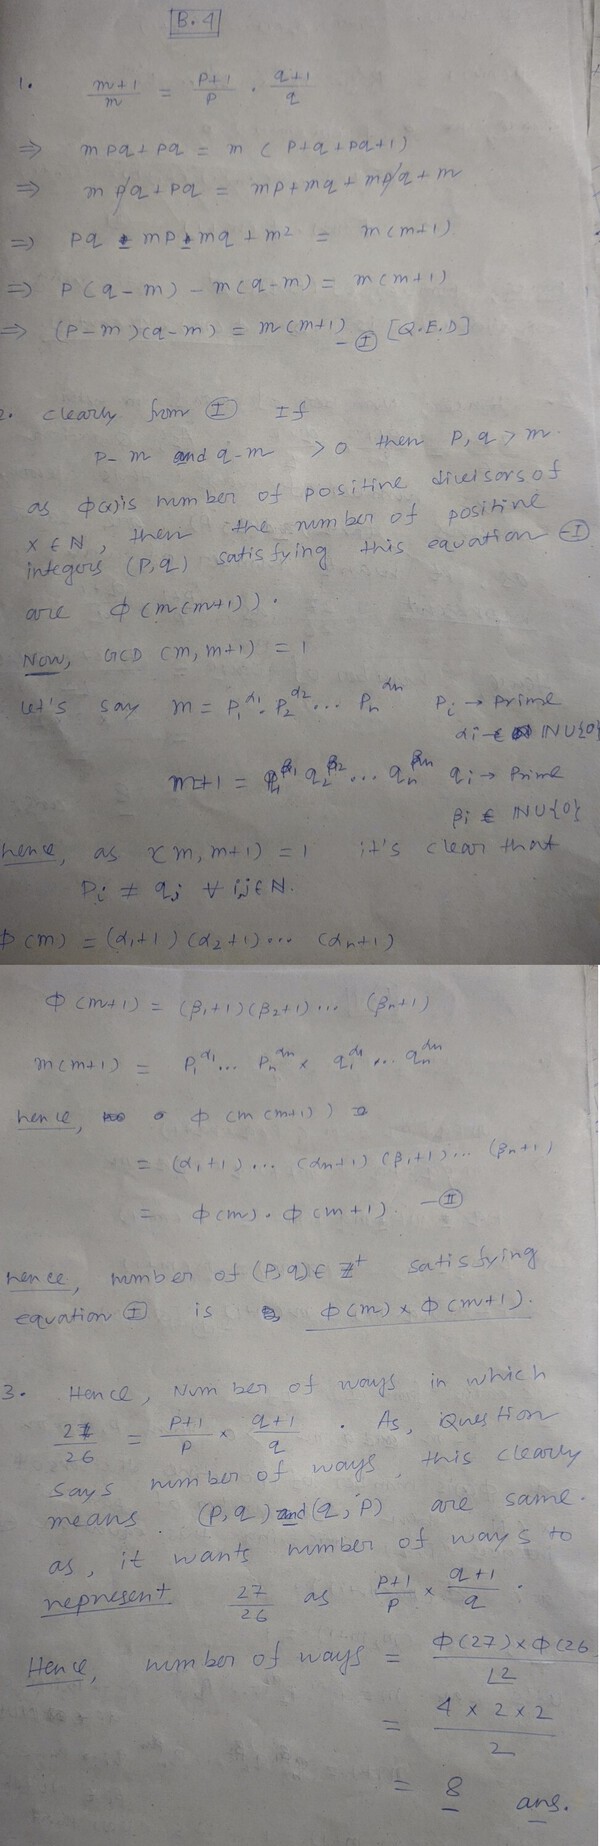 B.4
1. (m+1)/m = (p+1)/p . (q+1)/q
⇒ mpq + pq = m (p+q+pq+1)
⇒ mpq + pq = mp + mq + mpq + m
⇒ pq - mp - mq + m² = m(m+1)
⇒ p(q-m) - m(q-m) = m(m+1)
⇒ (p-m)(q-m) = m(m+1) - Ⓘ [Q.E.D]
2. Clearly from Ⓘ If
p-m and q-m > 0 then p, q > m.
as ϕ(x) is number of positive divisors of
x ∈ N, then the number of positive
integers (p,q) satisfying this equation - Ⓘ
are ϕ(m(m+1)).
Now, GCD (m, m+1) = 1
Let's say m = p₁^α₁ . p₂^α₂ ... pₙ^αₙ pᵢ → prime
αᵢ ∈ INU{0}
m+1 = q₁^β₁ q₂^β₂ ... qₙ^βₙ qᵢ → prime
βᵢ ∈ INU{0}
hence, as (m, m+1) = 1 it's clear that
pᵢ ≠ qⱼ ∀ i,j ∈ N.
ϕ(m) = (α₁+1) (α₂+1) ... (αₙ+1)
ϕ(m+1) = (β₁+1)(β₂+1) ... (βₙ+1)
m(m+1) = p₁^α₁ ... pₙ^αₙ × q₁^α₁ ... qₙ^αₙ
hence, ϕ(m(m+1)) =
= (α₁+1) ... (αₙ+1) (β₁+1) ... (βₙ+1)
= ϕ(m) . ϕ(m+1) - Ⓘ Ⓘ
hence, number of (p,q) ∈ Z⁺ satisfying
equation Ⓘ is ϕ(m) × ϕ(m+1).
3. Hence, Number of ways in which
27/26 = (p+1)/p × (q+1)/q . As, Question
says number of ways, this clearly
means (p,q) and (q,p) are same.
as, it wants number of ways to
represent 27/26 as (p+1)/p × (q+1)/q .
Hence, number of ways = ϕ(27) × ϕ(26) / L2
= 4 × 2 × 2 / 2
= 8 ans.